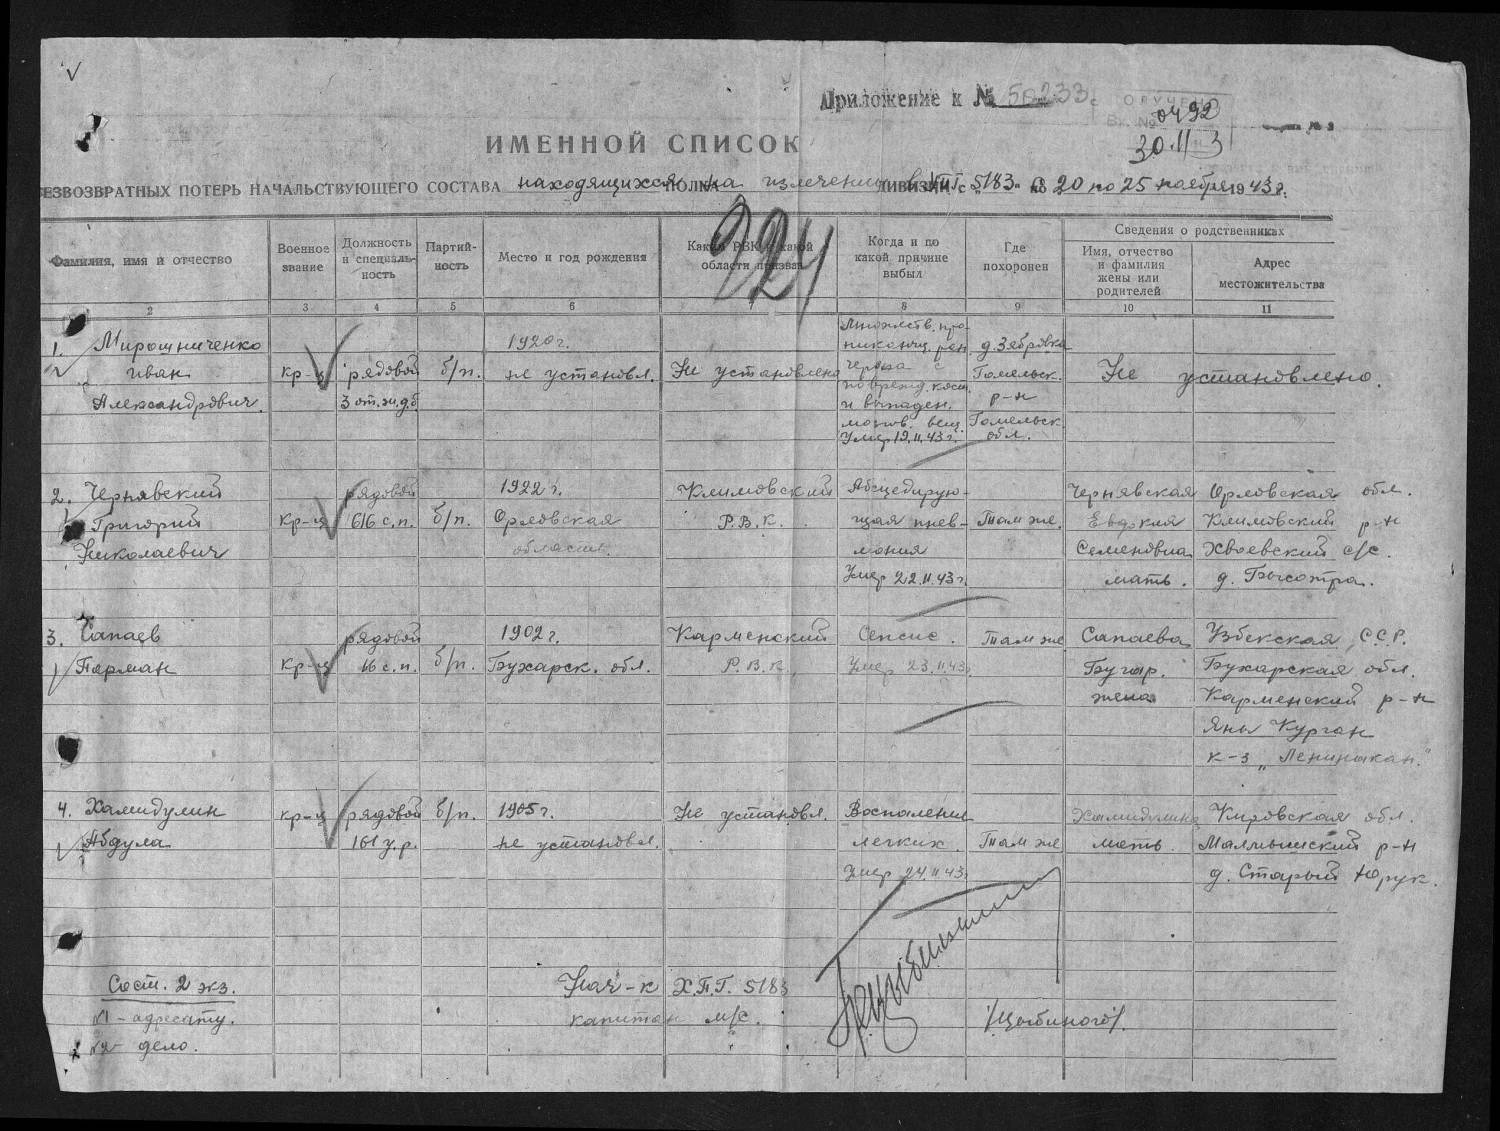 Приложение к № 50233с
ОГУЧЕНО
Вх. № 0492
30.11 3
ИМЕННОЙ СПИСОК
БЕЗВОЗВРАТНЫХ ПОТЕРЬ НАЧАЛЬСТВУЮЩЕГО СОСТАВА находящихся ПОЛКА на излечении в ДИВИЗИИ с 5183 по 20 по 25 ноября 1943 г.
224
Фамилия, имя и отчество
Военное звание
Должность и специальность
Партийность
Место и год рождения
Каким РВК и какой области призван
Когда и по какой причине выбыл
Где похоронен
Сведения о родственниках
Имя, отчество и фамилия жены или родителей
Адрес местожительства
2 3 4 5 6 7 8 9 10 11
1. Мирошниченко
Иван
Александрович.
кр-ц
рядовой
3 от.ж.д.б
б/п.
1920 г.
не установл.
Не установлено
Множеств. про-
никающ. ран
черепа с
поврежд. кост.
и выпаден.
мозгов. вещ.
Умер 19.11.43 г.
д. Зябровка
Гомельск.
р-н
Гомельск.
обл.
Не установлено.
2. Чернявский
Григорий
Николаевич
кр-ц
рядовой
616 с.п.
б/п.
1922 г.
Орловская
область.
Климовский
Р.В.К.
Абсцедирую-
щая пнев-
мония
Умер 22.11.43 г.
Там же.
Чернявская
Евдокия
Семеновна
мать.
Орловская обл.
Климовский р-н
Хвоевский с/с.
д.
3. Сапаев
Парман
кр-ц
рядовой
16 с.п.
б/п.
1902 г.
Бухарск. обл.
Карменский
Р.В.К.
Сепсис.
Умер 23.11.43г
Там же
Сапаева
Бугар.
жена
Узбекская С.С.Р.
Бухарская обл.
Карменский р-н
Яны Курган
к-з „Ленинакан."
4. Хамидулин
Абдула
кр-ц
рядовой
161 у.р.
б/п.
1905 г.
не установл.
Не установл.
Воспаления
легких.
Умер 24.11.43г
Там же
Хамидулина
мать.
Кировская обл.
Малмышский р-н
д. Старый Юрук.
Сост. 2 экз.
№1 - адресату.
№2 - дело.
Нач-к Х.П.Г. 5183
капитан м/с.
/Цыбиного/.